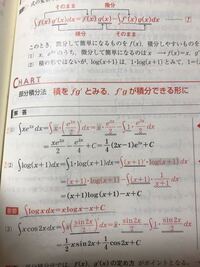 そのまま 積分
∫f(x)g'(x)dx=f(x)g(x)-∫f'(x)g(x)dx
そのまま 微分
このとき，微分して簡単になるものをf(x)，積分しやすいものを
CHART
部分積分法 積をfg'とみる．f'gが積分できる形に
解答
(1) ∫xe^{2x}dx=∫x(e^{2x}/2)'dx=x・e^{2x}/2-∫1・e^{2x}/2 dx
=xe^{2x}/2-e^{2x}/4+C=1/4(2x-1)e^{2x}+C
(2) ∫log(x+1)dx=∫1・log(x+1)dx=∫(x+1)'・log(x+1)dx
=(x+1)・log(x+1)-∫(x+1)・1/(x+1)dx
=(x+1)log(x+1)-x+C
∫logxdx=xlogx-x+C
(3) ∫xcos2xdx=∫x(sin2x/2)'dx=x・sin2x/2-∫1・sin2x/2 dx
=1/2 x・sin2x+1/4 cos2x+C